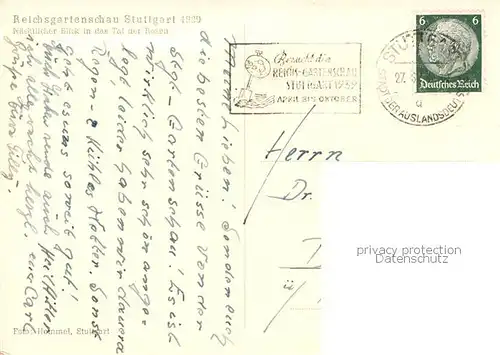 Reichsgartenschau Stuttgart 1939
Nächtlicher Blick in das Tal der Rosen
Besucht die
REICHS-GARTENSCHAU
STUTTGART 1939
APRIL BIS OKTOBER
STUTTGART
27.
a
6 6
Deutsches Reich
Meine Lieben! Senden euch
die besten Grüsse von der
Stgt-Gartenschau! Es ist
wirklich sehr schön ange-
legt leider haben wir dauernd
Regen- u. kühles Wetter. Sonst
geht es uns soweit gut!
Heil Hitler
ich alle recht herzl. euer Carl
Herrn
Dr.
Foto: Hommel, Stuttgart
provisorisches
Datenschutzfeld